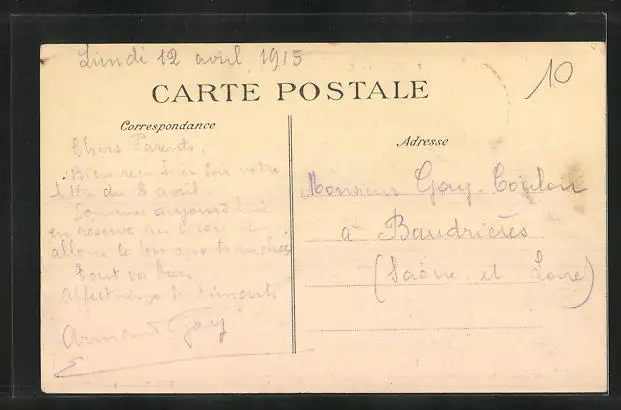 Lundi 12 avril 1915
10
CARTE POSTALE
Correspondance
Adresse
Chers Parents,
Bien reçu hier soir votre
lettre du 8 avril.
Sommes aujourd'hui
en réserve
allons ce soir aux tranchées
Tout va bien
Affectueux
Armand Gay
Monsieur Gay-Coulon
à Baudrières
(Saône et Loire)